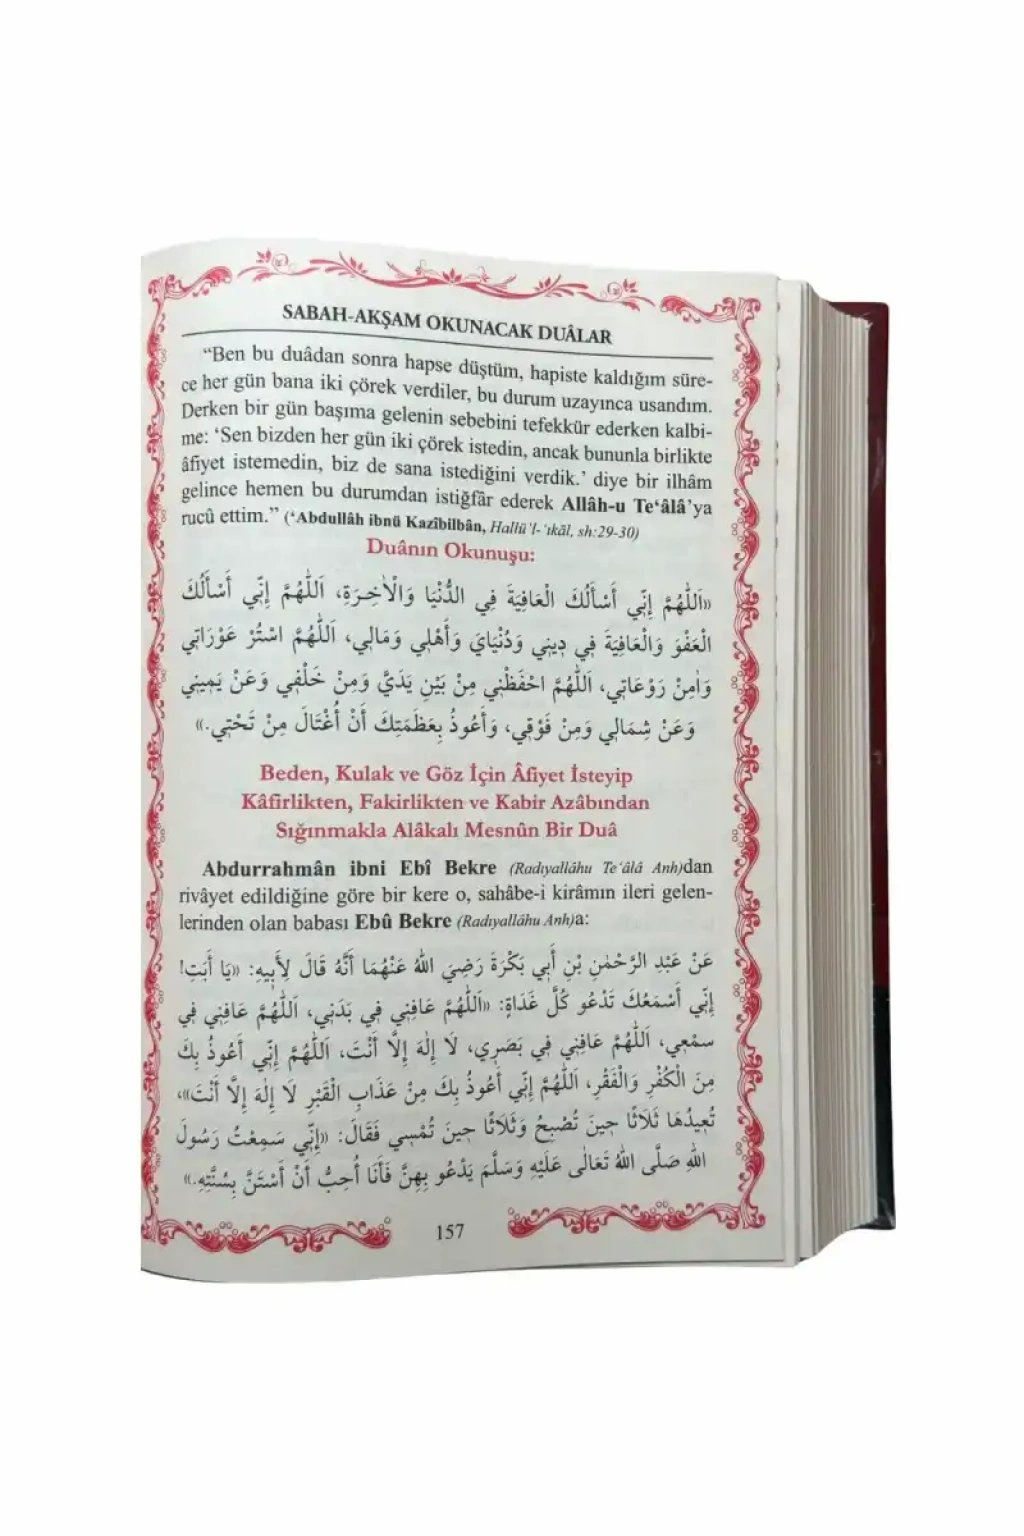 SABAH-AKŞAM OKUNACAK DUÂLAR
“Ben bu duâdan sonra hapse düştüm, hapiste kaldığım süre-
ce her gün bana iki çörek verdiler, bu durum uzayınca usandım.
Derken bir gün başıma gelenin sebebini tefekkür ederken kalbi-
me: ‘Sen bizden her gün iki çörek istedin, ancak bununla birlikte
âfiyet istemedin, biz de sana istediğini verdik.’ diye bir ilhâm
gelince hemen bu durumdan istiğfâr ederek Allâh-u Te‘âlâ’ya
rucû ettim.” (‘Abdullâh ibnü Kazîbilbân, Hallü’l-‘ıkāl, sh:29-30)
Duânın Okunuşu:
«اَللّٰهُمَّ إِنِّي أَسْأَلُكَ الْعَافِيَةَ فِي الدُّنْيَا وَالْاٰخِرَةِ، اَللّٰهُمَّ إِنِّي أَسْأَلُكَ
الْعَفْوَ وَالْعَافِيَةَ فِي دِينِي وَدُنْيَايَ وَأَهْلِي وَمَالِي، اَللّٰهُمَّ اسْتُرْ عَوْرَاتِي
وَاٰمِنْ رَوْعَاتِي، اَللّٰهُمَّ احْفَظْنِي مِنْ بَيْنِ يَدَيَّ وَمِنْ خَلْفِي وَعَنْ يَمِينِي
وَعَنْ شِمَالِي وَمِنْ فَوْقِي، وَأَعُوذُ بِعَظَمَتِكَ أَنْ أُغْتَالَ مِنْ تَحْتِي.»
Beden, Kulak ve Göz İçin Âfiyet İsteyip
Kâfirlikten, Fakirlikten ve Kabir Azâbından
Sığınmakla Alâkalı Mesnûn Bir Duâ
Abdurrahmân ibni Ebî Bekre (Radıyallâhu Te‘âlâ Anh)dan
rivâyet edildiğine göre bir kere o, sahâbe-i kirâmın ileri gelen-
lerinden olan babası Ebû Bekre (Radıyallâhu Anh)a:
عَنْ عَبْدِ الرَّحْمٰنِ بْنِ أَبِي بَكْرَةَ رَضِيَ اللّٰهُ عَنْهُمَا أَنَّهُ قَالَ لِأَبِيهِ: «يَا أَبَتِ!
إِنِّي أَسْمَعُكَ تَدْعُو كُلَّ غَدَاةٍ: «اَللّٰهُمَّ عَافِنِي فِي بَدَنِي، اَللّٰهُمَّ عَافِنِي فِي
سَمْعِي، اَللّٰهُمَّ عَافِنِي فِي بَصَرِي، لَا إِلٰهَ إِلَّا أَنْتَ، اَللّٰهُمَّ إِنِّي أَعُوذُ بِكَ
مِنَ الْكُفْرِ وَالْفَقْرِ، اَللّٰهُمَّ إِنِّي أَعُوذُ بِكَ مِنْ عَذَابِ الْقَبْرِ لَا إِلٰهَ إِلَّا أَنْتَ»،
تُعِيدُهَا ثَلَاثًا حِينَ تُصْبِحُ وَثَلَاثًا حِينَ تُمْسِي فَقَالَ: «إِنِّي سَمِعْتُ رَسُولَ
اللّٰهِ صَلَّى اللّٰهُ تَعَالٰى عَلَيْهِ وَسَلَّمَ يَدْعُو بِهِنَّ فَأَنَا أُحِبُّ أَنْ أَسْتَنَّ بِسُنَّتِهِ.»
157